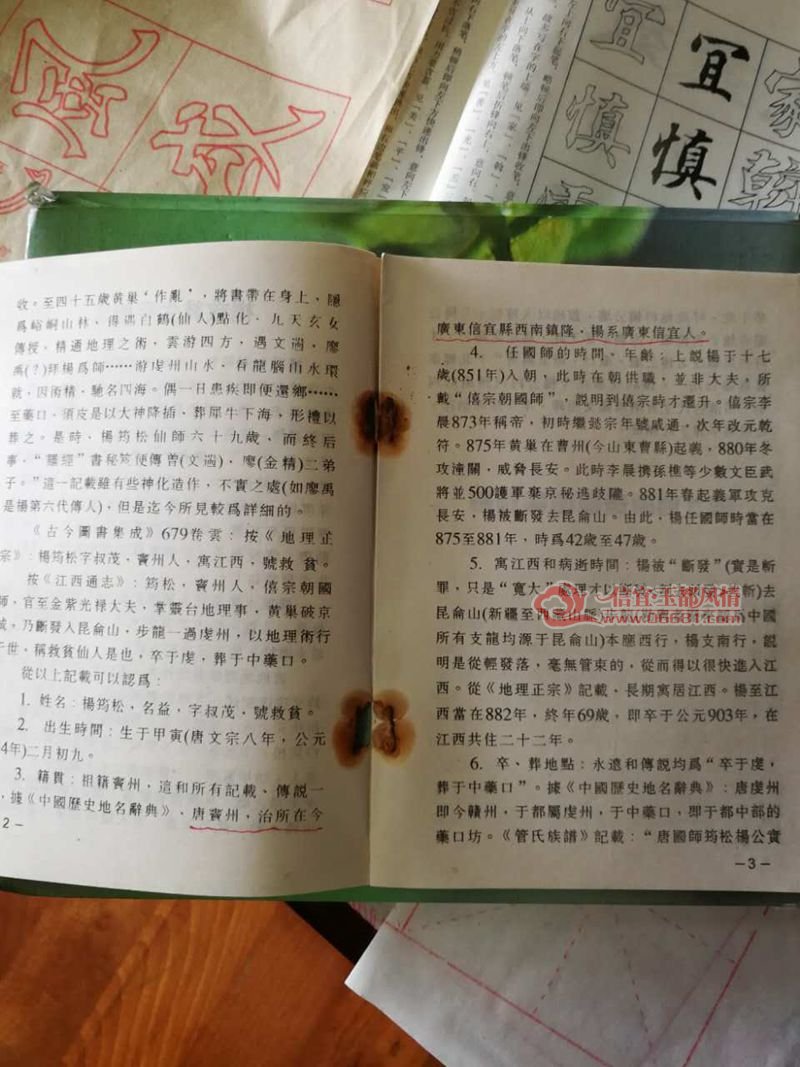 收。至四十五歲黃巢‘作亂’，將書帶在身上、隱
爲峪峒山林、得遇白鶴(仙人)點化、九天玄女
傳授，精通地理之術，雲游四方，遇文遄、廖
禹(?)拜楊爲師……游虔州山水、看龍腦雨水環
就，因術精，馳名四海。偶一日患疾即便還鄉……
至藥口、須皮是以大神降插、葬犀牛下海，形禮以
葬之。是時、楊筠松仙師六十九歲、而終后
事，“羅經”書秘笈便傳曾(文遄)，廖(金精)二弟
子。”這一記載雖有些神化造作，不實之處(如廖禹
是楊第六代傳人)，但是迄今所見較爲詳細的。
《古今圖書集成》679卷雲：按《地理正
宗》：楊筠松字叔茂、竇州人，寓江西，號救貧。
按《江西通志》：筠松，竇州人，僖宗朝國
師，官至金紫光禄大夫，掌靈台地理事，黃巢破京
城，乃斷發入昆侖山，步龍一過虔州，以地理術行
于世，稱救貧仙人是也，卒于虔，葬于中藥口。
從以上記載可以認爲：
1. 姓名：楊筠松，名益，字叔茂，號救貧。
2. 出生時間：生于甲寅(唐文宗八年，公元
4年)二月初九。
3. 籍貫：祖籍竇州，這和所有記載、傳説一
，據《中國歷史地名辭典》，唐竇州，治所在今
2－
廣東信宜縣西南鎮隆、楊系廣東信宜人。
4. 任國師的時間、年齡：上説楊于十七
歲(851年)入朝，此時在朝供職，並非大夫，所
戴“僖宗朝國師”，説明到僖宗時才還升。僖宗李
晨873年稱帝，初時繼懿宗年號咸通，次年改元乾
符。875年黃巢在曹州(今山東曹縣)起義，880年冬
攻潼關，威脅長安。此時李晨携孫樵等少數文臣武
將並500護軍棄京秘逃歧隴。881年春起義軍攻克
長安，楊被斷發去昆侖山。由此，楊任國師時當在
875至881年，時爲42歲至47歲。
5. 寓江西和病逝時間：楊被“斷發”(實是斬
罪，只是“寬大”處理才以
昆侖山(新疆至
所有支龍均源于昆侖山)本應西行，楊支南行，説
明是從輕發落，毫無管束的，從而得以很快進入江
西。從《地理正宗》記載、長期寓居江西。楊至江
西當在882年，終年69歲，即卒于公元903年，在
江西共住二十二年。
6. 卒、葬地點：永遠和傳説均爲“卒于虔，
葬于中藥口”。據《中國歷史地名辭典》：唐虔州
即今赣州，于都屬虔州，于中藥口，即于都中部的
藥口坊。《管氏族譜》記載：“唐國師筠松楊公實
－3－
信宜玉都风情
www.06681.com
宜
慎